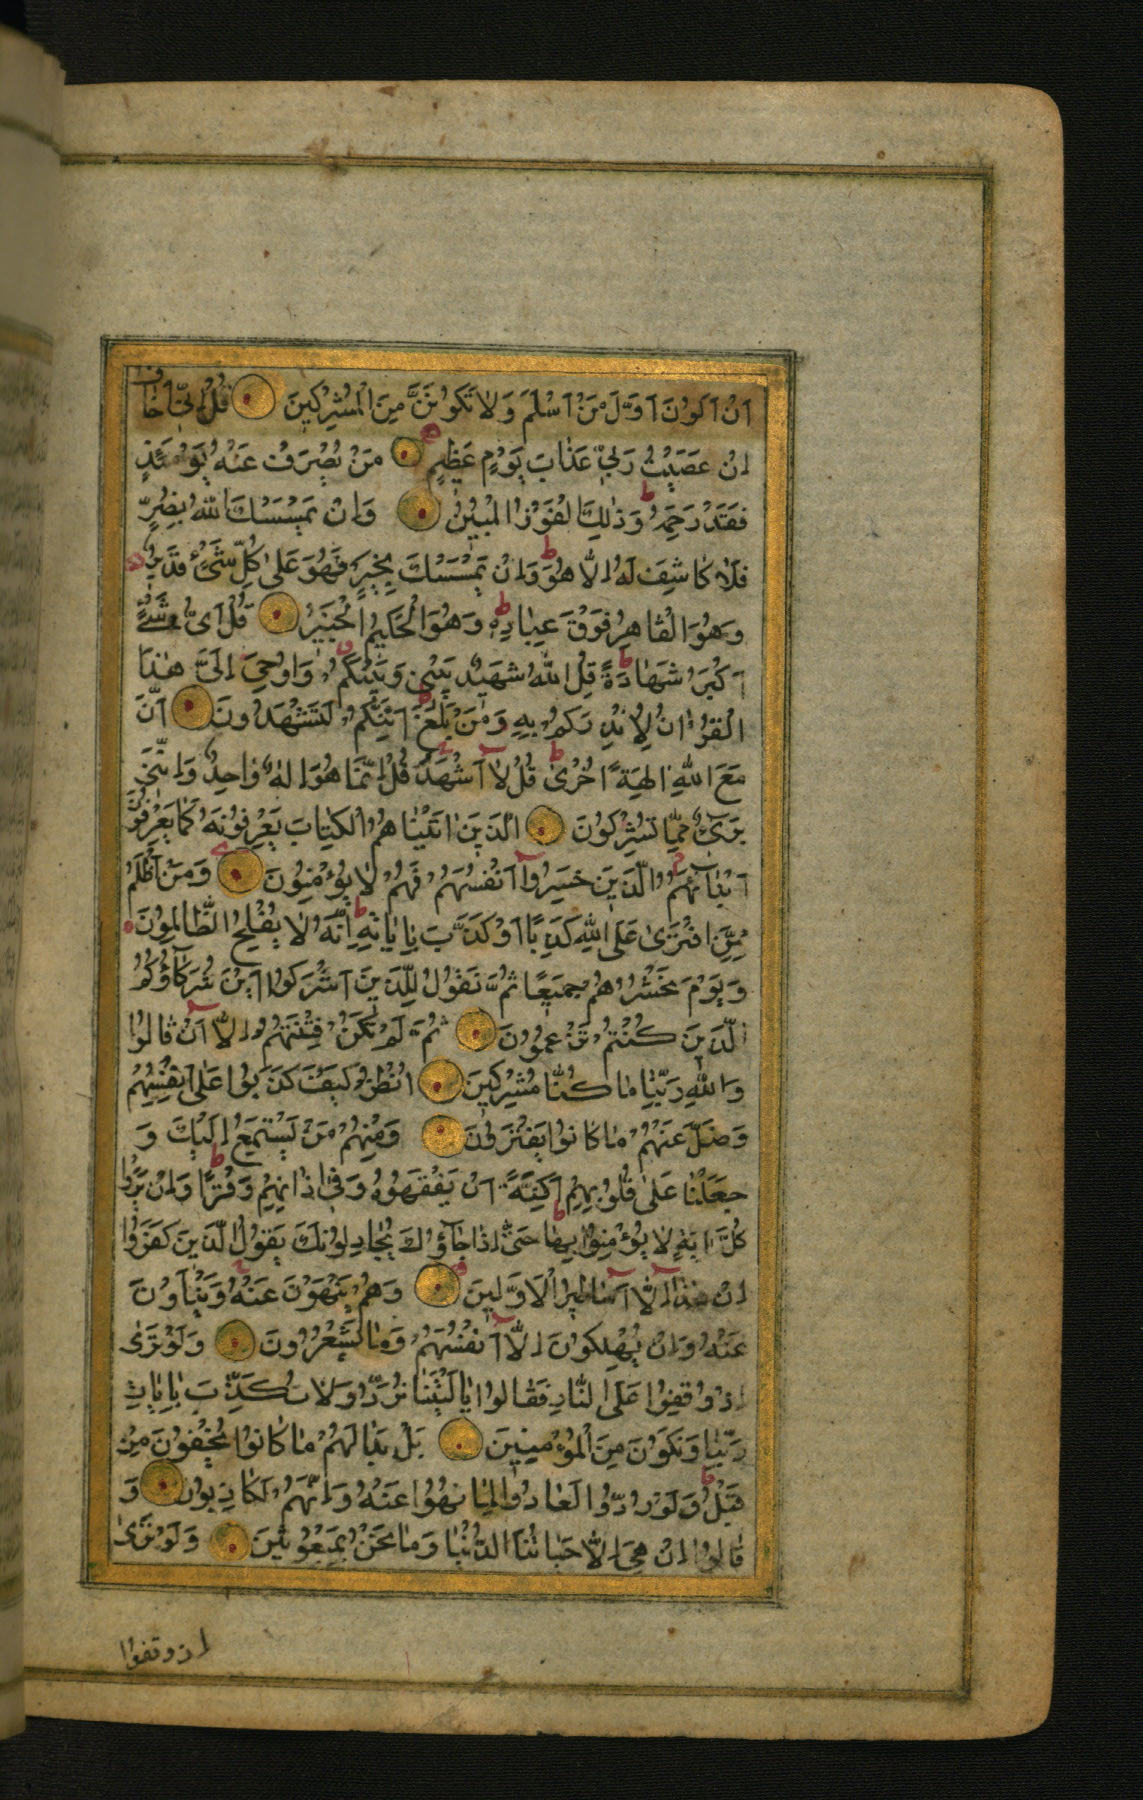 اَنْ اَكُونَ اَوَّلَ مَنْ اَسْلَمَ وَلَا تَكُونَنَّ مِنَ الْمُشْرِكِينَ قُلْ اِنّٖي اَخَافُ
اِنْ عَصَيْتُ رَبّٖي عَذَابَ يَوْمٍ عَظٖيمٍ مَنْ يُصْرَفْ عَنْهُ يَوْمَئِذٍ
فَقَدْ رَحِمَهُ وَذٰلِكَ الْفَوْزُ الْمُبٖينُ وَاِنْ يَمْسَسْكَ اللّٰهُ بِضُرٍّ
فَلَا كَاشِفَ لَهُ اِلَّا هُوَ وَاِنْ يَمْسَسْكَ بِخَيْرٍ فَهُوَ عَلٰى كُلِّ شَيْءٍ قَدٖيرٌ
وَهُوَ الْقَاهِرُ فَوْقَ عِبَادِهٖ وَهُوَ الْحَكٖيمُ الْخَبٖيرُ قُلْ اَيُّ شَيْءٍ
اَكْبَرُ شَهَادَةً قُلِ اللّٰهُ شَهٖيدٌ بَيْنٖي وَبَيْنَكُمْ وَاُوحِيَ اِلَيَّ هٰذَا
الْقُرْاٰنُ لِاُنْذِرَكُمْ بِهٖ وَمَنْ بَلَغَ اَئِنَّكُمْ لَتَشْهَدُونَ اَنَّ
مَعَ اللّٰهِ اٰلِهَةً اُخْرٰى قُلْ لَا اَشْهَدُ قُلْ اِنَّمَا هُوَ اِلٰهٌ وَاحِدٌ وَاِنَّنٖي
بَرٖيءٌ مِمَّا تُشْرِكُونَ اَلَّذٖينَ اٰتَيْنَاهُمُ الْكِتَابَ يَعْرِفُونَهُ كَمَا يَعْرِفُونَ
اَبْنَاءَهُمْ اَلَّذٖينَ خَسِرُوا اَنْفُسَهُمْ فَهُمْ لَا يُؤْمِنُونَ وَمَنْ اَظْلَمُ
مِمَّنِ افْتَرٰى عَلَى اللّٰهِ كَذِبًا اَوْ كَذَّبَ بِاٰيَاتِهٖ اِنَّهُ لَا يُفْلِحُ الظَّالِمُونَ
وَيَوْمَ نَحْشُرُهُمْ جَمٖيعًا ثُمَّ نَقُولُ لِلَّذٖينَ اَشْرَكُوا اَيْنَ شُرَكَاؤُكُمُ
الَّذٖينَ كُنْتُمْ تَزْعُمُونَ ثُمَّ لَمْ تَكُنْ فِتْنَتُهُمْ اِلَّا اَنْ قَالُوا
وَاللّٰهِ رَبِّنَا مَا كُنَّا مُشْرِكٖينَ اُنْظُرْ كَيْفَ كَذَبُوا عَلٰى اَنْفُسِهِمْ
وَضَلَّ عَنْهُمْ مَا كَانُوا يَفْتَرُونَ وَمِنْهُمْ مَنْ يَسْتَمِعُ اِلَيْكَ وَ
جَعَلْنَا عَلٰى قُلُوبِهِمْ اَكِنَّةً اَنْ يَفْقَهُوهُ وَفٖي اٰذَانِهِمْ وَقْرًا وَاِنْ يَرَوْا
كُلَّ اٰيَةٍ لَا يُؤْمِنُوا بِهَا حَتّٰى اِذَا جَاؤُكَ يُجَادِلُونَكَ يَقُولُ الَّذٖينَ كَفَرُوا
اِنْ هٰذَا اِلَّا اَسَاطٖيرُ الْاَوَّلٖينَ وَهُمْ يَنْهَوْنَ عَنْهُ وَيَنْاَوْنَ
عَنْهُ وَاِنْ يُهْلِكُونَ اِلَّا اَنْفُسَهُمْ وَمَا يَشْعُرُونَ وَلَوْ تَرٰى
اِذْ وُقِفُوا عَلَى النَّارِ فَقَالُوا يَا لَيْتَنَا نُرَدُّ وَلَا نُكَذِّبَ بِاٰيَاتِ
رَبِّنَا وَنَكُونَ مِنَ الْمُؤْمِنٖينَ بَلْ بَدَا لَهُمْ مَا كَانُوا يُخْفُونَ مِنْ
قَبْلُ وَلَوْ رُدُّوا لَعَادُوا لِمَا نُهُوا عَنْهُ وَاِنَّهُمْ لَكَاذِبُونَ وَ
قَالُوا اِنْ هِيَ اِلَّا حَيَاتُنَا الدُّنْيَا وَمَا نَحْنُ بِمَبْعُوثٖينَ وَلَوْ تَرٰى
اذ وقفوا